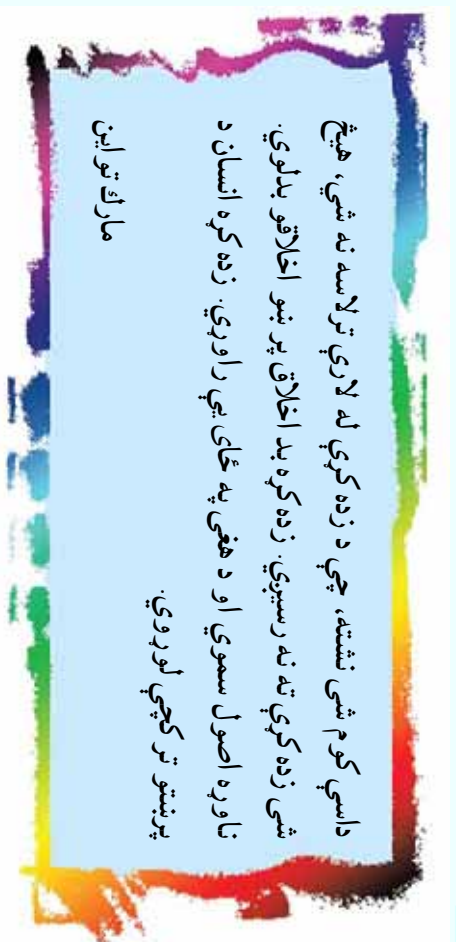 داسې کوم شی نشته، چې د زده کړې له لارې ترلاسه نه شي، هيڅ
شی زده کړې ته نه رسيږي. زده کړه بد اخلاق پر ښو اخلاقو بدلوي.
ناوړه اصول سموي او د هغې په ځای يې راوړي. زده کړه انسان د
پرښتو تر کچې لوړوي.
مارك تواين